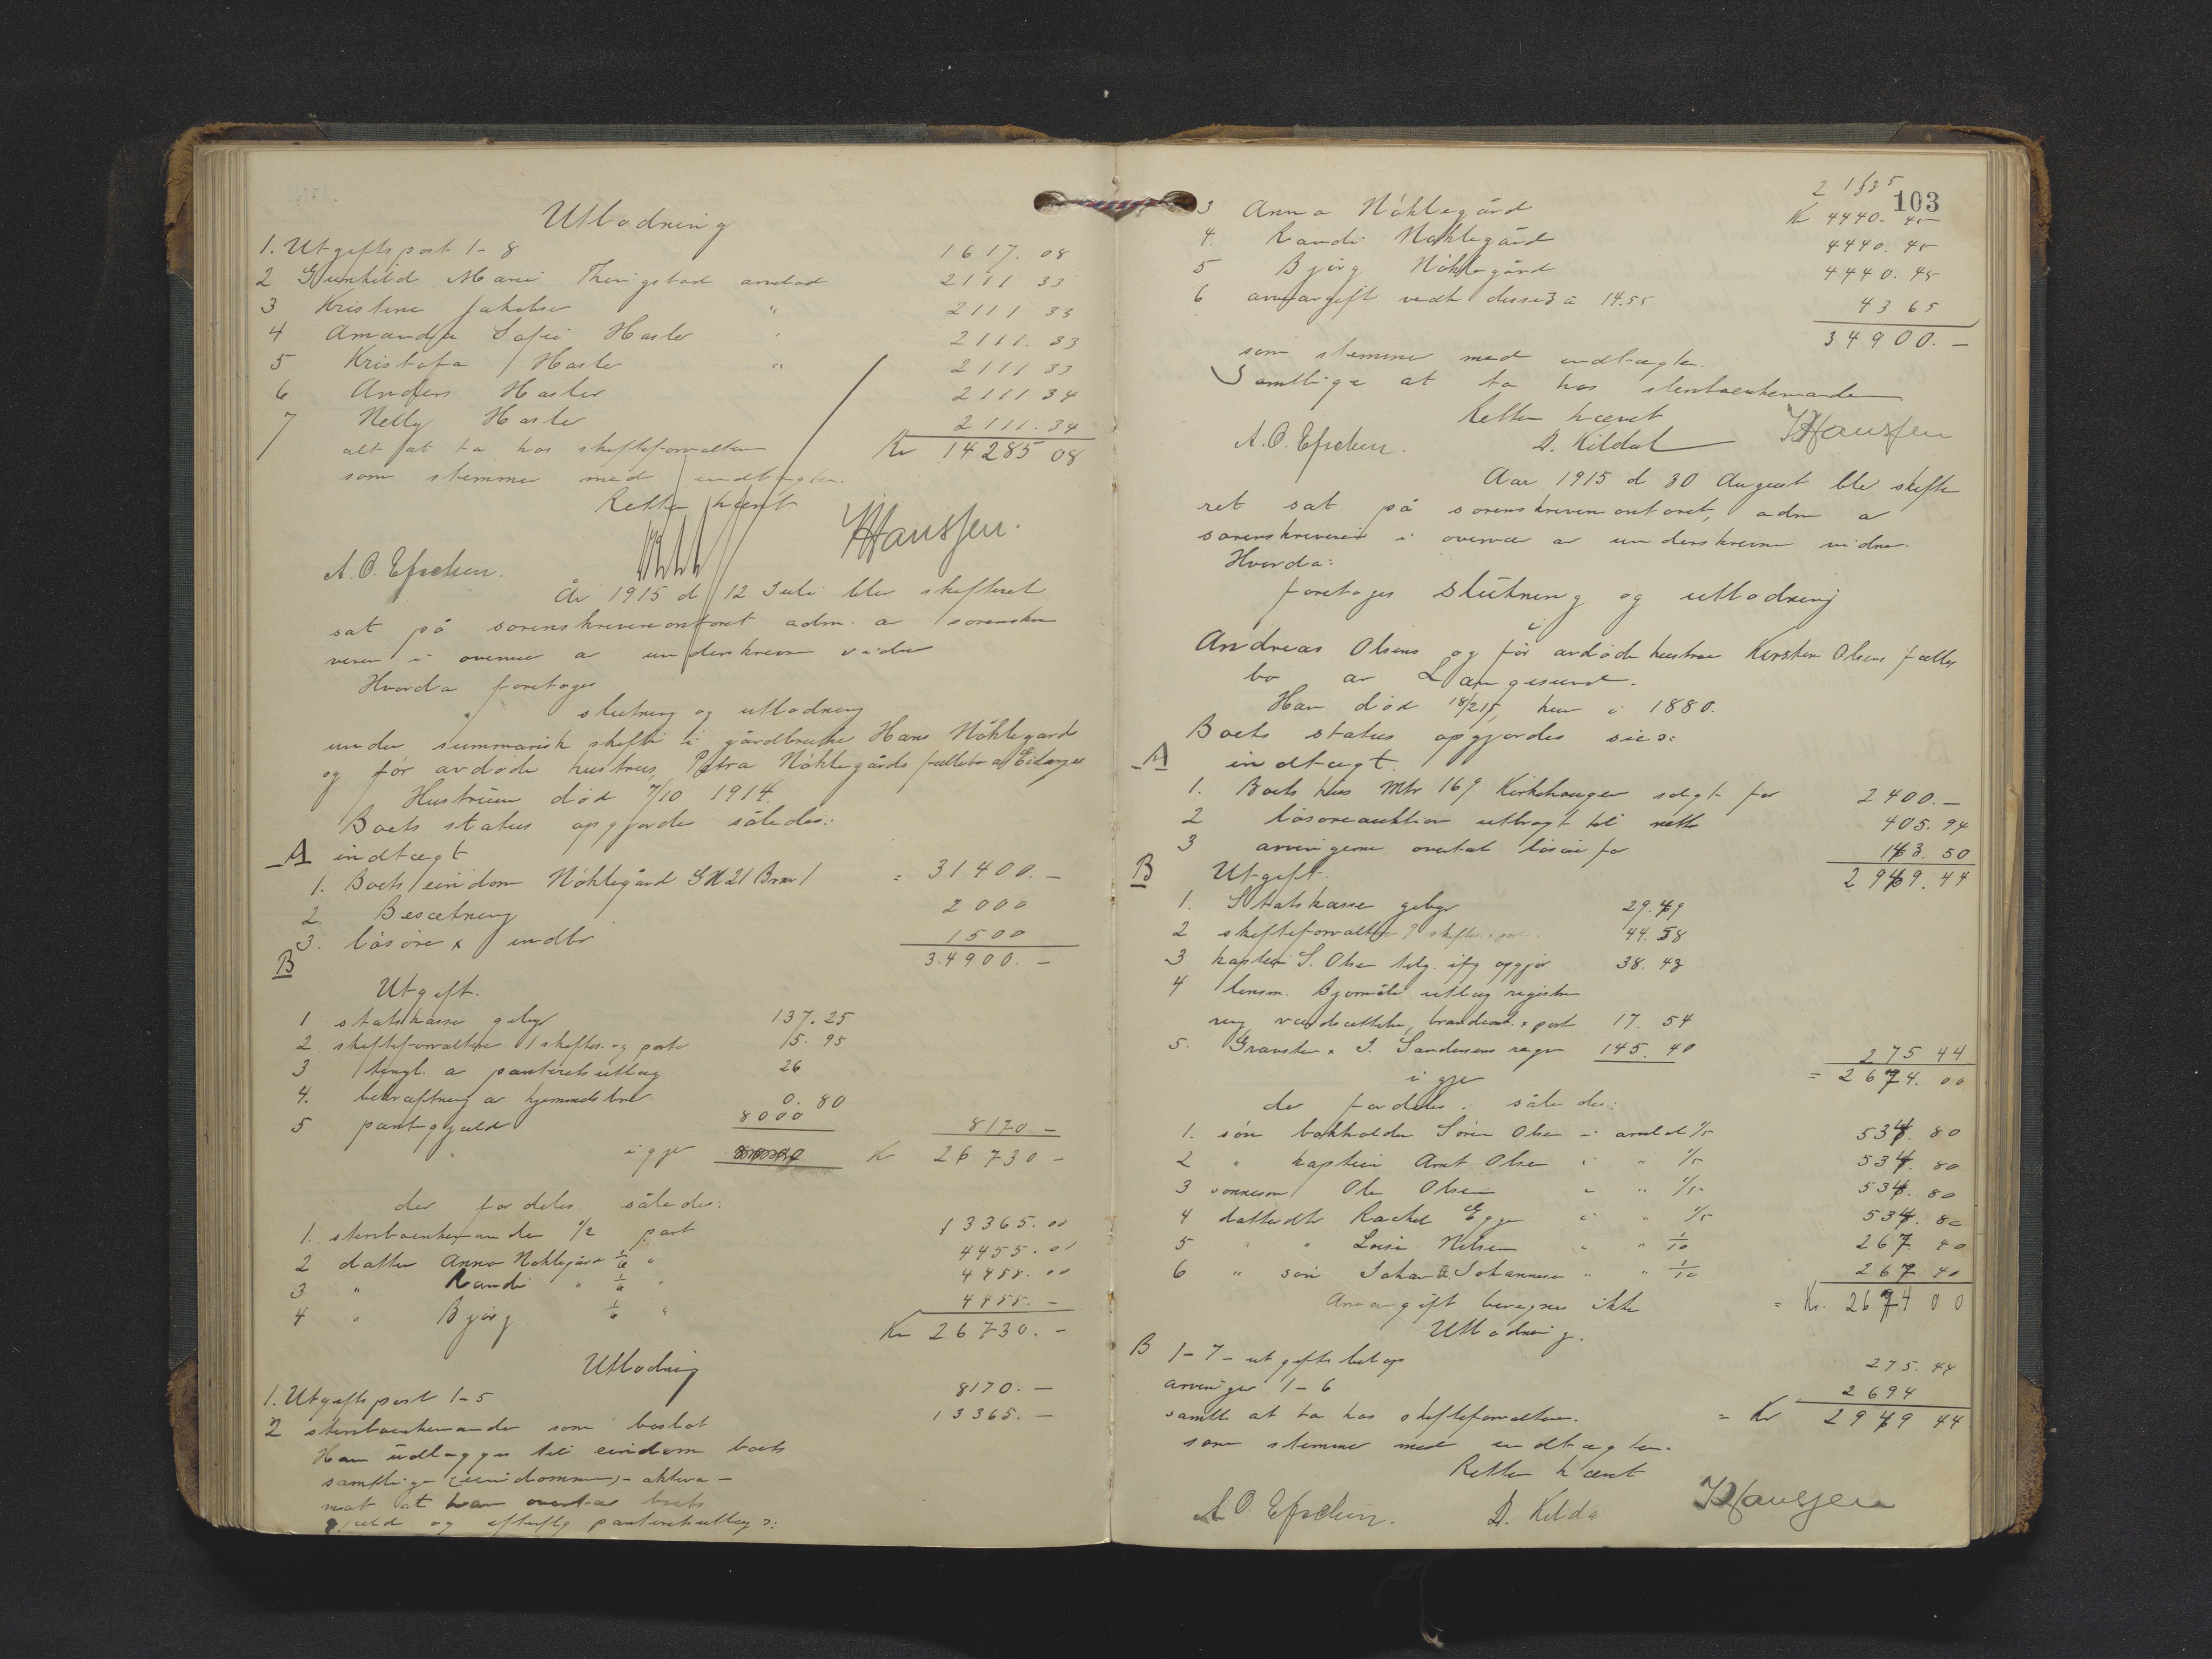 Utlodning
1. Utgiftspost 1-8 1617. 08
2 Gunhild Marie arvelod 2111 33
3 Kristine Jakobse " 2111 33
4 Amanda Sofie Hasler " 2111. 33
5 Kristofa Hasler " 2111 33
6 Anders Hasler 2111 34
7 Nelly Hasler 2111. 34
alt at ta hos skifteforvalteren Kr 14285 08
som stemmer med indtægten.
Retten hævet
A. O. Efschen. Hanssen.
År 1915 d 12 Juli blev skifteret
sat på sorenskriverkontoret adm. a sorenskri
veren i overvær a underskrevne vidner
Hvorda foretoges
slutning og utlodning
under summarisk skifte i gårdbruker Hans Nóklegårds
og før avdøde hustrus, Petra Nóklegårds fællesbo a Eidanger
Hustruen død 7/10 1914.
Boets status opgjordes således:
A indtægt
1. Boets eiendom Nóklegård GN 21 Brnr 1 = 31400. -
2. Besætning 2000
3. løsøre x indbo 1500
34900. -
B
Utgift.
1 statskasse gebyr 137. 25
2 skifteforvaltere 1 skiftes. og porto 5. 95
3 tingl. a panteretsutlæg 26
4. bekræftning a hjemmelsbrev 0. 80
5 pantgjæld 8000 8170 -
igjen K 26730 -
der fordeles således:
1. sterboenkemanden 1/2 part 13365. 00
2 datter Anna Nóklegård 1/6 " 4455. 00
3 " Randi " 1/6 " 4455. 00
4 " Bjørg 1/6 " 4455. -
Kr 26730. -
Utlodning
1. Utgiftspost 1-5 8170. -
2 sterboenkemanden som boslod 13365. -
Han udlægges til eiendom boets
samtlige (eiendommen) - aktiva -
mot at han overtar boets
gjæld og efterflg panteretsutlæg ɔ:
103
21535
3 Anna Nóklegård K 4440. 45
4. Randi Nóklegård 4440. 45
5 Bjørg Nóklegård 4440. 45
6 arveavgift vedk disse 3 à 14.55 43 65
34900. -
som stemmer med indtægten.
Samtlige at ta hos sterboenkemanden
Retten hævet
A. O. Efschen. D. Kildal Hanssen
Aar 1915 d 30 August blev skifte
ret sat på sorenskriverkontoret, adm a
sorenskriveren i overvær a underskrevne vidner.
Hvorda:
foretoges slutning og utlodning
i
Andreas Olsens og før avdøde hustru Kirsten Olsens fælles
bo av Langesund.
Han død 18/2 15, hun i 1880.
Boets status opgjordes sies:
A indtægt.
1. Boets hus Mtr 169 Kirkehaugen solgt for 2400. -
2 løsøreauktion utbragt til netto 405. 94
3 arvingerne overtat løsøre for 143. 50
2949. 44
B Utgift.
1. Statskasse gebyr 29. 49
2 skifteforvaltere 44. 58
3 kaptein S. Olsen tilg. ifg opgjør 38. 43
4 lensm. utlæg registre
ring værdsættelse, x port 17. 54
5. Gravsten x J. Sandersens regn 145. 40 275 44
igjen = 2674. 00
der fordeles således:
1. søn bokholder Søren Olsen i arvelod 1/5 534. 80
2 " kaptein Arnt Olsen i " 1/5 534. 80
3 sønnesøn Ole Olsen i " 1/5 534. 80
4 datterdtr Rachel Egge i " 1/5 534. 80
5 " " Lovise Nilsen " " 1/10 267 40
6 " søn Johan Johannesen " " 1/10 267 40
Arveavgift beregnes ikke = Kr. 2674 00
Utlodning.
B 1-7 - utgiftsbeløp 275. 44
arvinger 1-6 2694
samtl. at ta hos skifteforvalteren. = Kr 2949 44
som stemmer med indtægten.
Retten hævet
A. O. Efschen. D. Kilda Hanssen